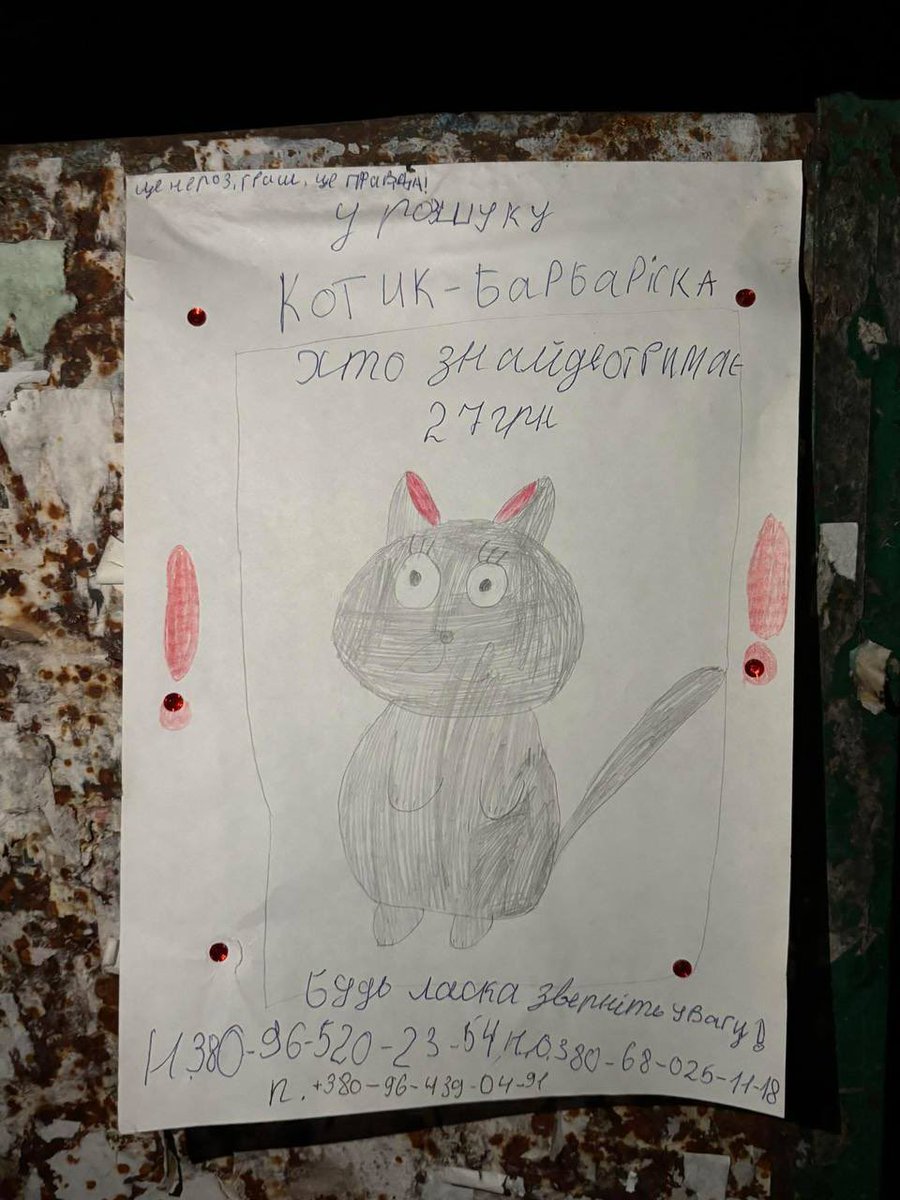 це не розіграш. це ПРАВДА!
у розшуку
КОТИК-БАРБАРіСКА
хто знайде отримає
27 грн
Будь ласка зверніть увагу!
Н.380-96-520-23-54, Н.О.380-68-025-11-18
П. +380-96-439-04-91